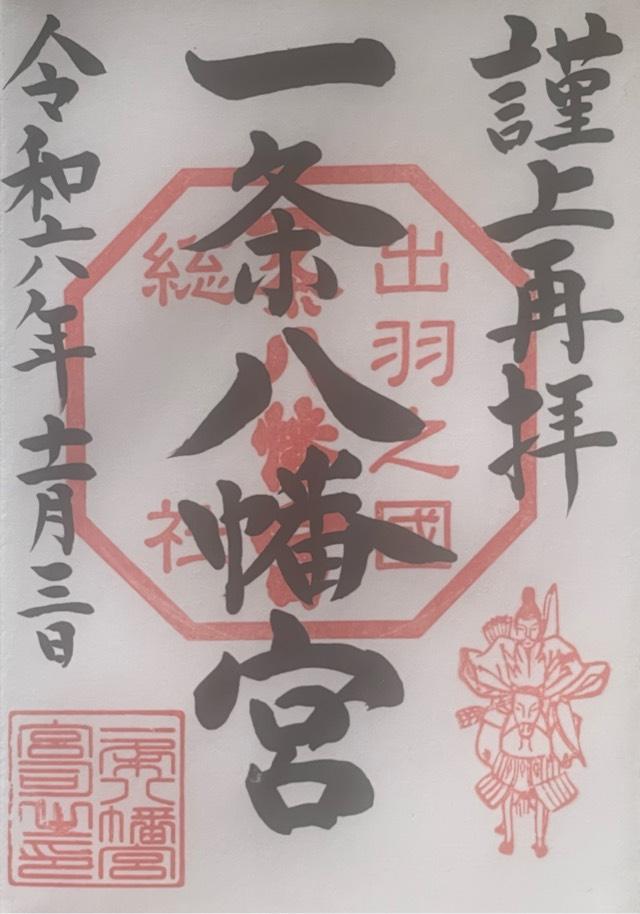 謹上再拝
一条八幡宮
令和六年十一月三日
出羽之國
総社
一條八幡宮
宮司之印